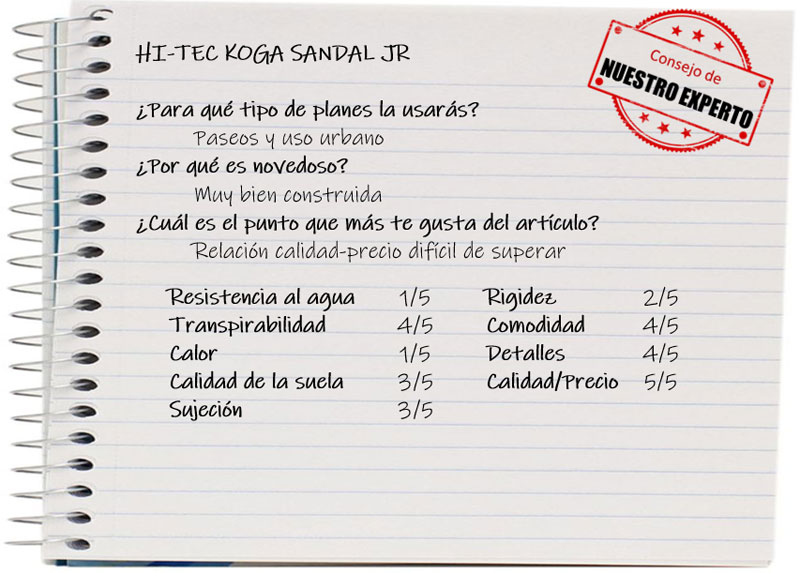 HI-TEC KOGA SANDAL JR
Consejo de
NUESTRO EXPERTO
¿Para qué tipo de planes la usarás?
Paseos y uso urbano
¿Por qué es novedoso?
Muy bien construida
¿Cuál es el punto que más te gusta del artículo?
Relación calidad-precio difícil de superar
Resistencia al agua 1/5 Rigidez 2/5
Transpirabilidad 4/5 Comodidad 4/5
Calor 1/5 Detalles 4/5
Calidad de la suela 3/5 Calidad/Precio 5/5
Sujeción 3/5